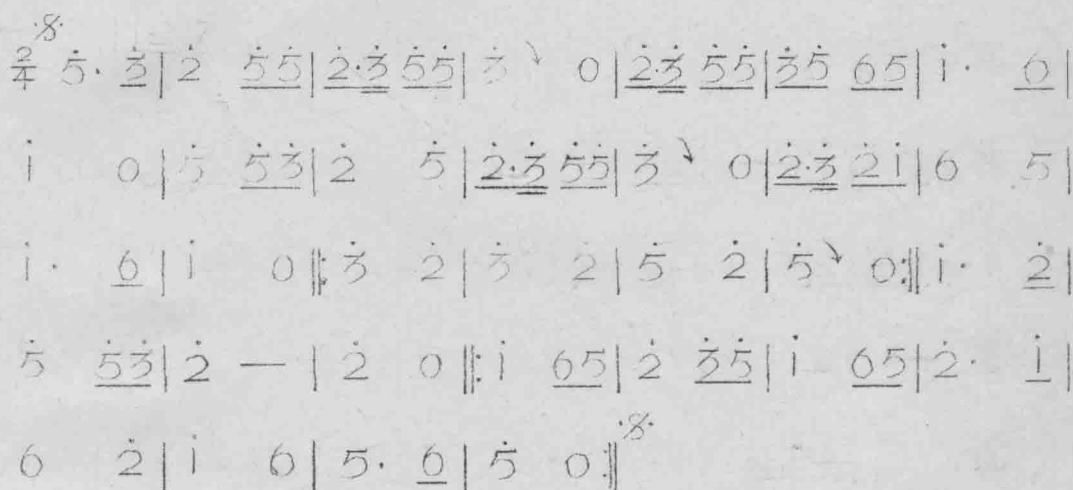 𝄋
2/4 5̇· 3̇ | 2̇ 5̇5̇ | 2̇·3̇ 5̇5̇ | 3̇ ↘ 0 | 2̇·3̇ 5̇5̇ | 3̇5̇ 65 | 1̇· 6 |
1̇ 0 | 5̇ 5̇3̇ | 2̇ 5̇ | 2̇·3̇ 5̇5̇ | 3̇ ↘ 0 | 2̇·3̇ 2̇1̇ | 6 5 |
1̇· 6 | 1̇ 0 ‖: 3̇ 2̇ | 3̇ 2̇ | 5̇ 2̇ | 5̇ ↘ 0 :‖ 1̇· 2̇ |
5̇ 5̇3̇ | 2̇ — | 2̇ 0 ‖: 1̇ 65 | 2̇ 3̇5̇ | 1̇ 65 | 2̇· 1̇ |
6 2̇ | 1̇ 6 | 5· 6 | 5̇ 0 :‖ 𝄋